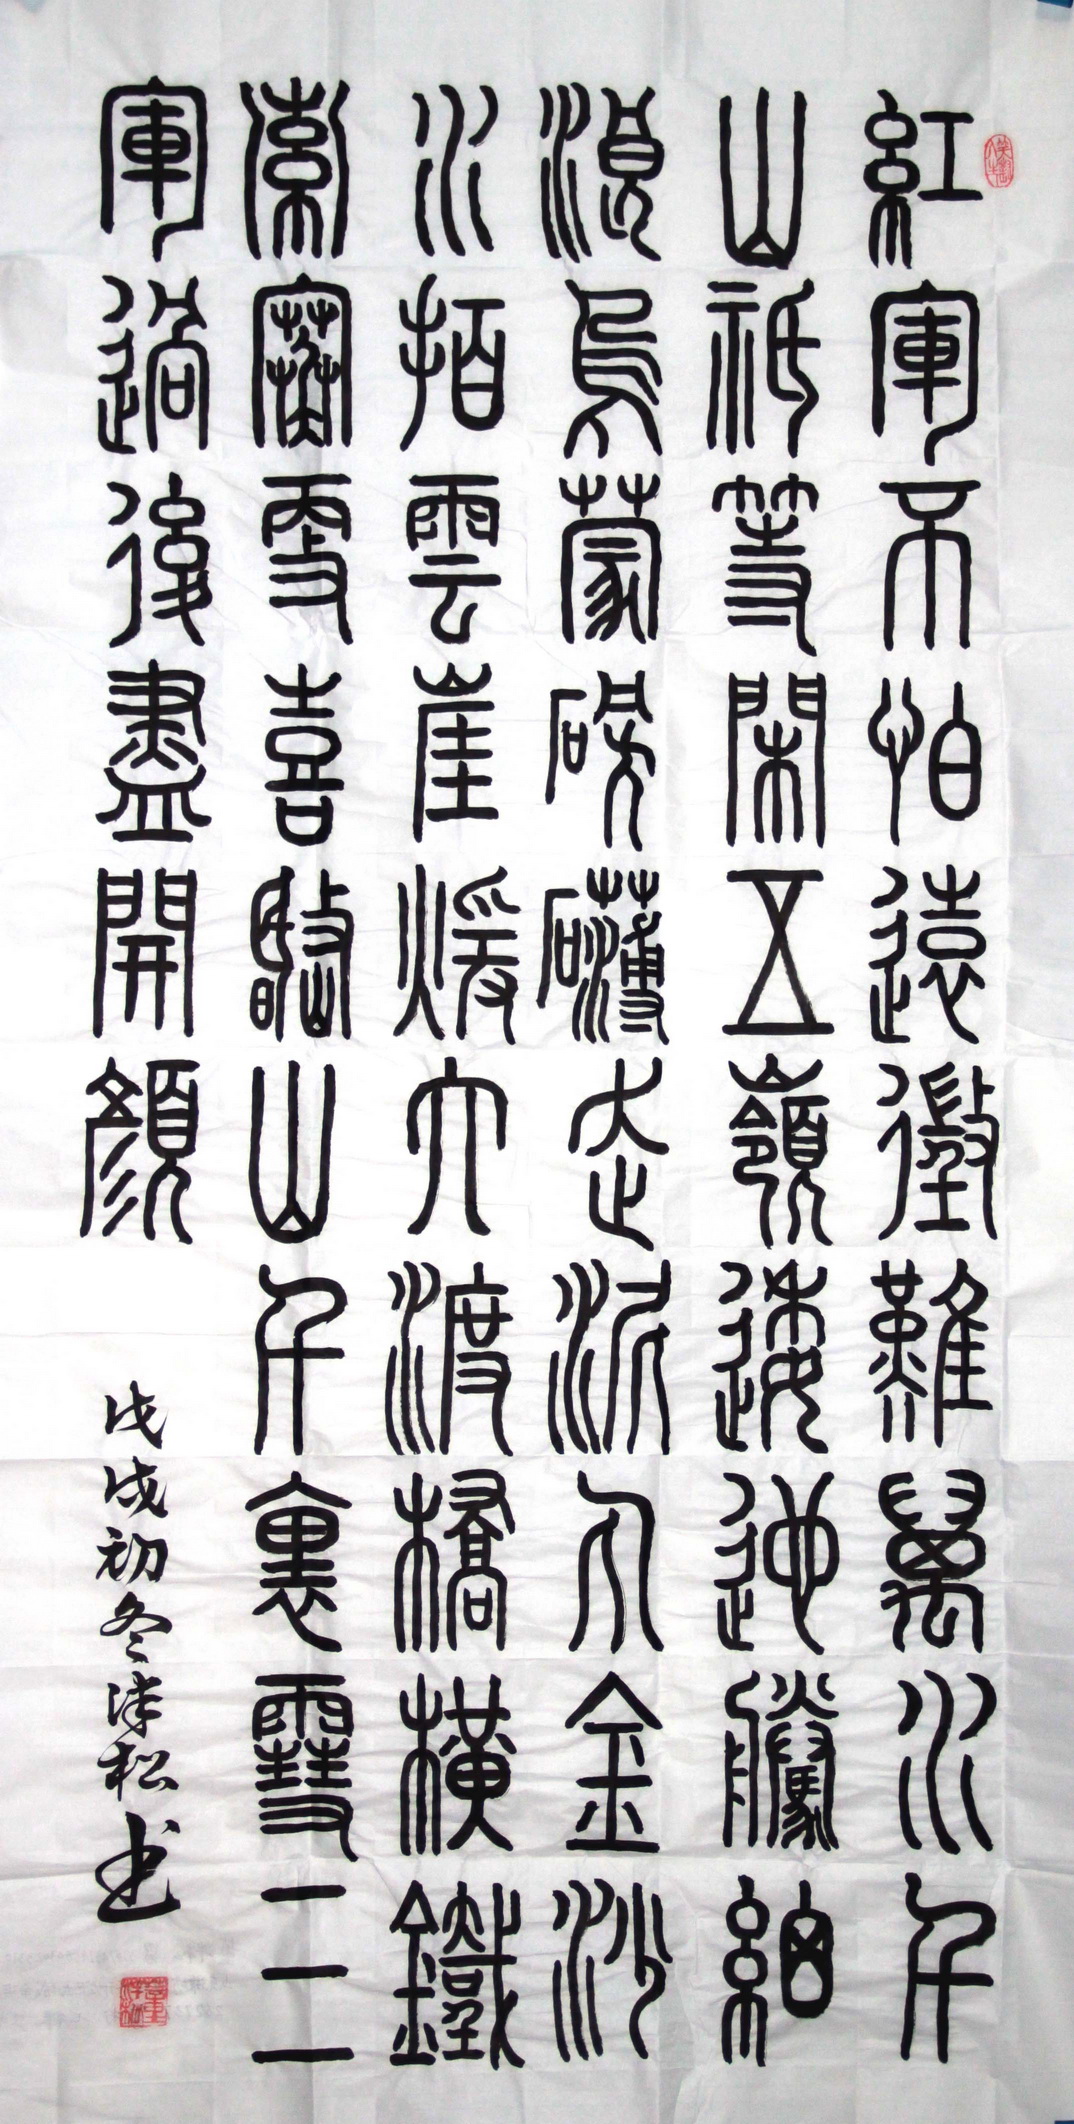 紅軍不怕遠徵難萬水千
山祇等閑五嶺逶迆騰細
浪烏蒙磅礴走泥丸金沙
水拍雲崖煖大渡橋橫鐵
索寒更喜岷山千裏雪三
軍過後盡開顏
戊戌初冬津松书